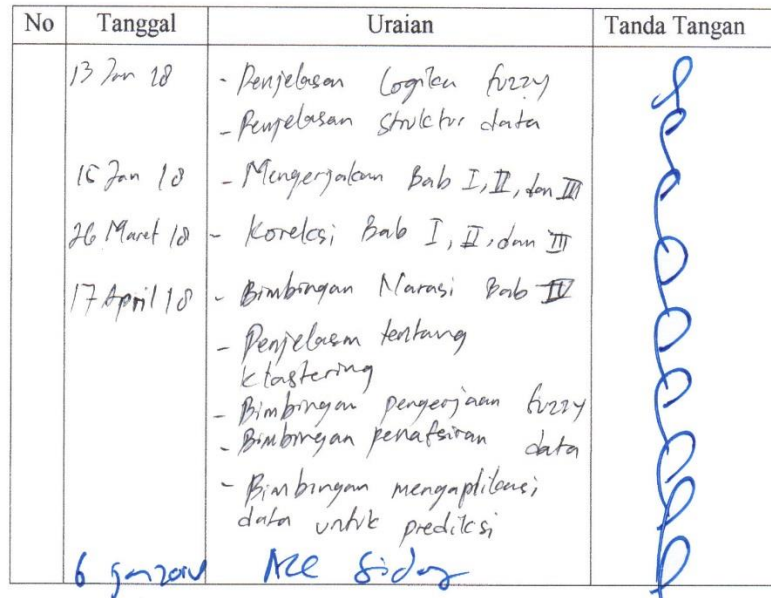 No Tanggal Uraian Tanda Tangan
13 Jan 18 - Penjelasan Logika fuzzy
- Penjelasan struktur data
15 Jan 18 - Mengerjakan Bab I, II, dan III
26 Maret 18 - Koreksi Bab I, II, dan III
17 April 18 - Bimbingan Narasi Bab IV
- Penjelasan tentang
klastering
- Bimbingan pengerjaan fuzzy
- Bimbingan penafsiran data
- Bimbingan mengaplikasi
data untuk prediksi
6 Acc Sidang